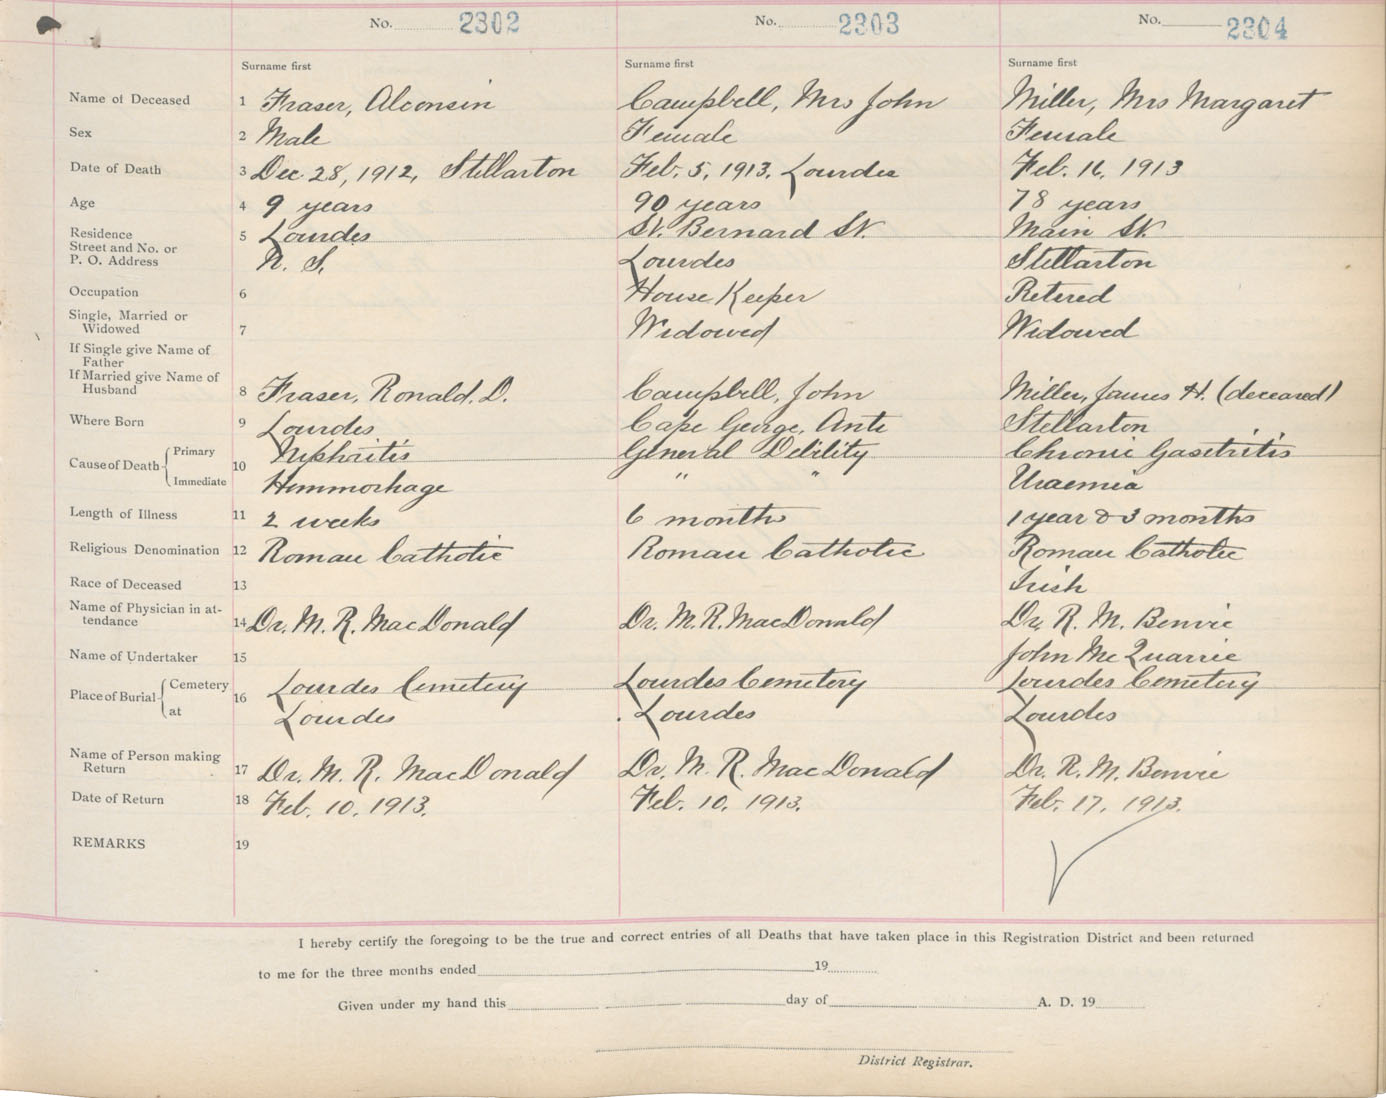 No. 2302 No. 2303 No. 2304
Surname first Surname first Surname first
Name of Deceased 1 Fraser, Alconsin Campbell, Mrs John Miller, Mrs Margaret
Sex 2 Male Female Female
Date of Death 3 Dec 28, 1912, Stellarton Feb. 5, 1913, Lourdes Feb. 16, 1913
Age 4 9 years 90 years 78 years
Residence 5 Lourdes St. Bernard St. Main St.
Street and No. or
P. O. Address N. S. Lourdes Stellarton
Occupation 6 House Keeper Retired
Single, Married or
Widowed 7 Widowed Widowed
If Single give Name of
Father
If Married give Name of
Husband 8 Fraser, Ronald. D. Campbell, John Miller, James H. (deceased)
Where Born 9 Lourdes Cape George, Ante Stellarton
Cause of Death Primary 10 Nephritis General Debility Chronic Gastritis
Immediate Hemmorhage " " Uraemia
Length of Illness 11 2 weeks 6 months 1 year & 3 months
Religious Denomination 12 Roman Catholic Roman Catholic Roman Catholic
Race of Deceased 13 Irish
Name of Physician in at-
tendance 14 Dr. M. R. MacDonald Dr. M. R. MacDonald Dr. R. M. Benvie
Name of Undertaker 15 John McQuarrie
Place of Burial Cemetery 16 Lourdes Cemetery Lourdes Cemetery Lourdes Cemetery
at Lourdes Lourdes Lourdes
Name of Person making
Return 17 Dr. M. R. MacDonald Dr. M. R. MacDonald Dr. R. M. Benvie
Date of Return 18 Feb. 10, 1913. Feb. 10, 1913. Feb. 17, 1913.
REMARKS 19
I hereby certify the foregoing to be the true and correct entries of all Deaths that have taken place in this Registration District and been returned
to me for the three months ended 19
Given under my hand this day of A. D. 19
District Registrar.